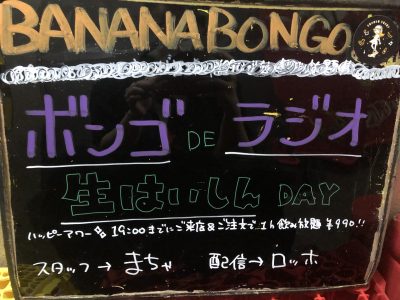 BANANA BONGO
ボンゴ DE ラジオ
生はいしん DAY
ハッピーアワー 19:00までにご来店&ご注文で 1h飲み放題 ¥990!!
スタッフ→まちゃ 配信→ロッホ